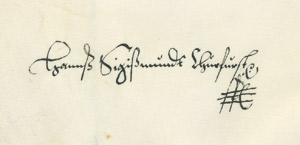 Hannß Sigißmundt Churfurst